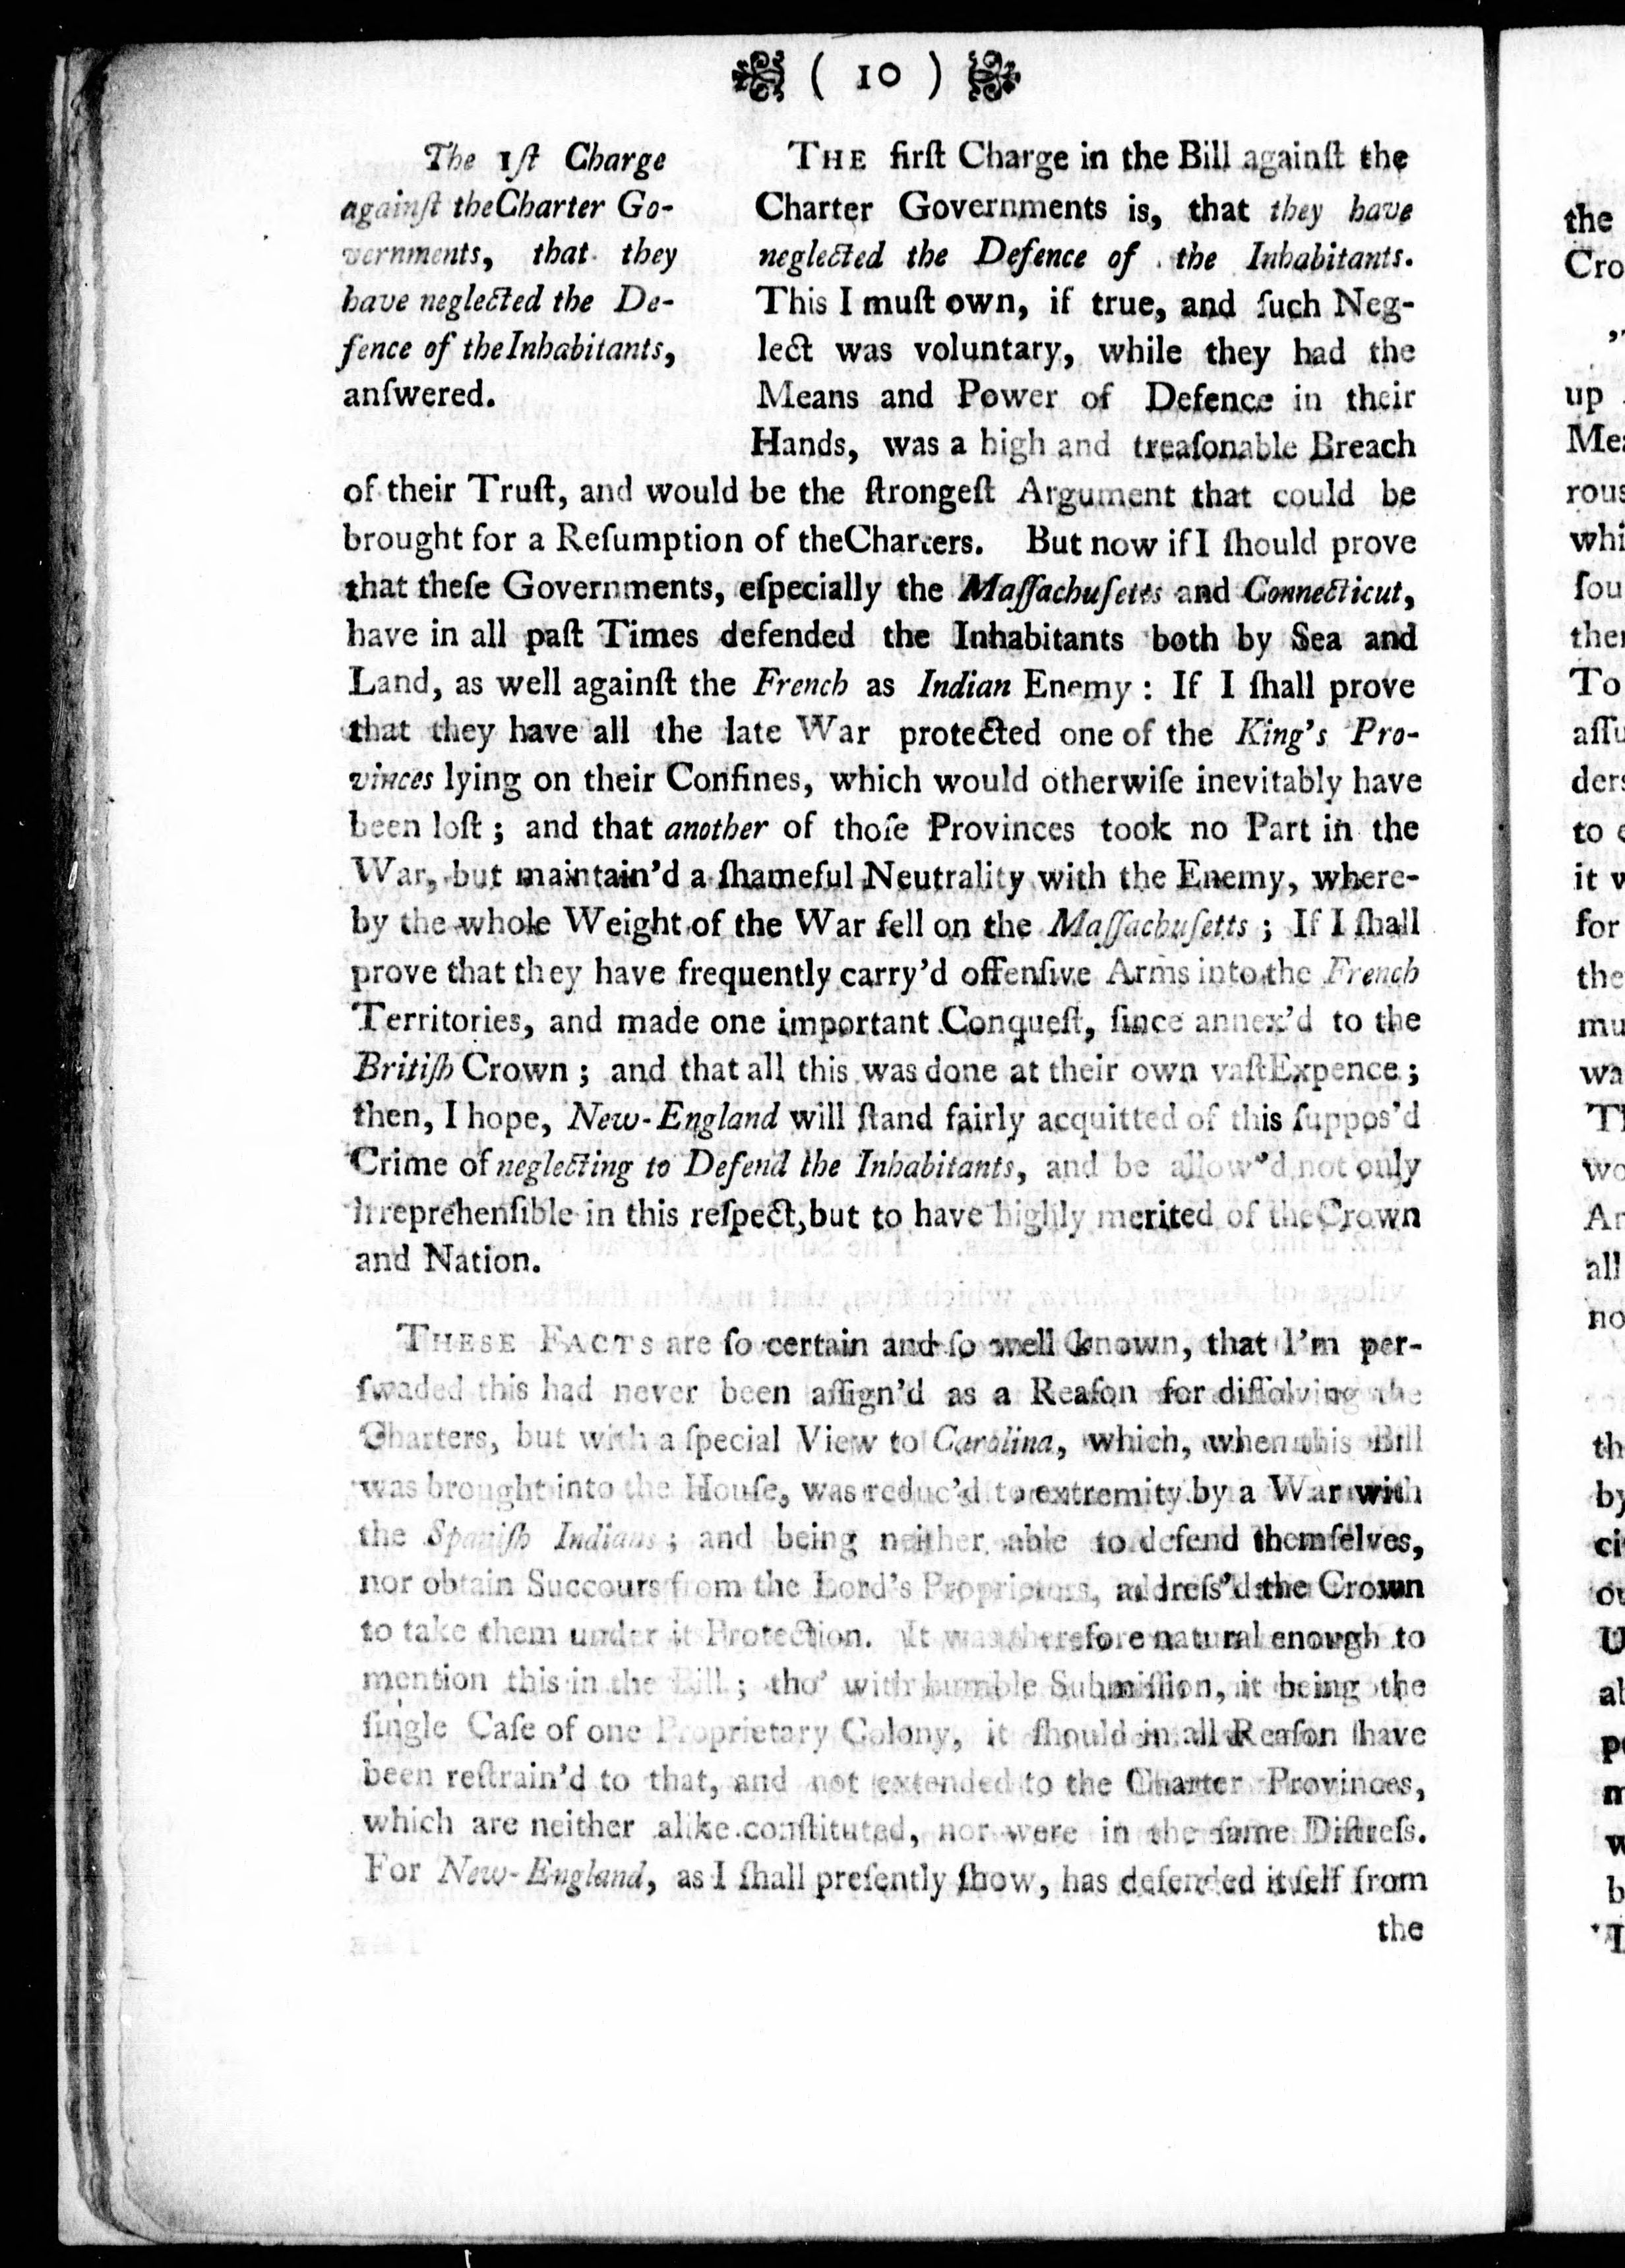 ( 10 )
The 1ſt Charge
againſt theCharter Go-
vernments, that they
have neglected the De-
fence of theInhabitants,
anſwered.
THE firſt Charge in the Bill againſt the
Charter Governments is, that they have
neglected the Defence of the Inhabitants.
This I muſt own, if true, and ſuch Neg-
lect was voluntary, while they had the
Means and Power of Defence in their
Hands, was a high and treaſonable Breach
of their Truſt, and would be the ſtrongeſt Argument that could be
brought for a Reſumption of theCharters. But now if I ſhould prove
that theſe Governments, eſpecially the Maſſachuſetts and Connecticut,
have in all paſt Times defended the Inhabitants both by Sea and
Land, as well againſt the French as Indian Enemy : If I ſhall prove
that they have all the late War protected one of the King's Pro-
vinces lying on their Confines, which would otherwiſe inevitably have
been loſt ; and that another of thoſe Provinces took no Part in the
War, but maintain'd a ſhameful Neutrality with the Enemy, where-
by the whole Weight of the War fell on the Maſſachuſetts ; If I ſhall
prove that they have frequently carry'd offenſive Arms into the French
Territories, and made one important Conqueſt, ſince annex'd to the
Britiſh Crown ; and that all this was done at their own vaſtExpence ;
then, I hope, New-England will ſtand fairly acquitted of this ſuppos'd
Crime of neglecting to Defend the Inhabitants, and be allow'd not only
irreprehenſible in this reſpect, but to have highly merited of theCrown
and Nation.
THESE FACTS are ſo certain and ſo well known, that I'm per-
ſwaded this had never been aſſign'd as a Reaſon for diſſolving the
Charters, but with a ſpecial View to Carolina, which, when this Bill
was brought into the Houſe, was reduc'd to extremity by a War with
the Spaniſh Indians ; and being neither able to defend themſelves,
nor obtain Succours from the Lord's Proprietors, addreſs'd the Crown
to take them under it Protection. It was therefore natural enough to
mention this in the Bill ; tho' with humble Submiſſion, it being the
ſingle Caſe of one Proprietary Colony, it ſhould in all Reaſon have
been reſtrain'd to that, and not extended to the Charter Provinces,
which are neither alike conſtituted, nor were in the ſame Diſtreſs.
For New-England, as I ſhall preſently ſhow, has defended itſelf from
the
the
Cro
up
Mea
rous
whi
ſou
then
To
aſſu
ders
to
it
for
the
mu
wa
Th
wo
Ar
all
no
th
by
ci
ou
U
al
p
m
w
b